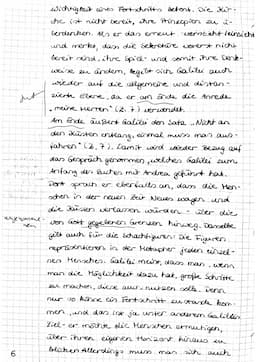 Wichtigkeit eines Fortschritts betont. Die Kir-
che ist nicht bereit, ihre Prinzipien zu ü-
berdenken. Als er das erneut versucht
und merkt, dass die Sekretäre vorerst nicht
bereit sind, ihre Spiel- und somit ihre Denk-
weise zu ändern, begibt sich Galilei auch
wieder auf die allgemeine und distan-
zierte Ebene, da er am Ende die Anrede
„meine Herren" (Z. 7) verwendet.
Am Ende äußert Galilei den Satz „Nicht an
den Küsten entlang, einmal muss man aus-
fahren" (Z. 7). Damit wird wieder Bezug auf
das Gespräch genommen, welches Galilei zum
Anfang des Buches mit Andrea geführt hat.
Dort sprach er ebenfalls an, dass die Men-
schen in der neuen Zeit Neues wagen und
die Küsten verlassen würden - über die
von Gott gegebenen Grenzen hinweg. Dasselbe
gilt auch für die Schachfiguren. Die Figuren
repräsentieren in der Metapher jeden einzel-
nen Menschen. Galilei meint, dass man, wenn
man die Möglichkeit dazu hat, große Schritte
zu machen, diese auch nutzen solle. Denn
nur so könne ein Fortschritt zustande kom-
men, und das ist ja unter anderem Galileis
Ziel - er möchte die Menschen ermutigen,
über ihren eigenen Horizont hinaus zu
blicken. Allerdings muss man sich auch
6